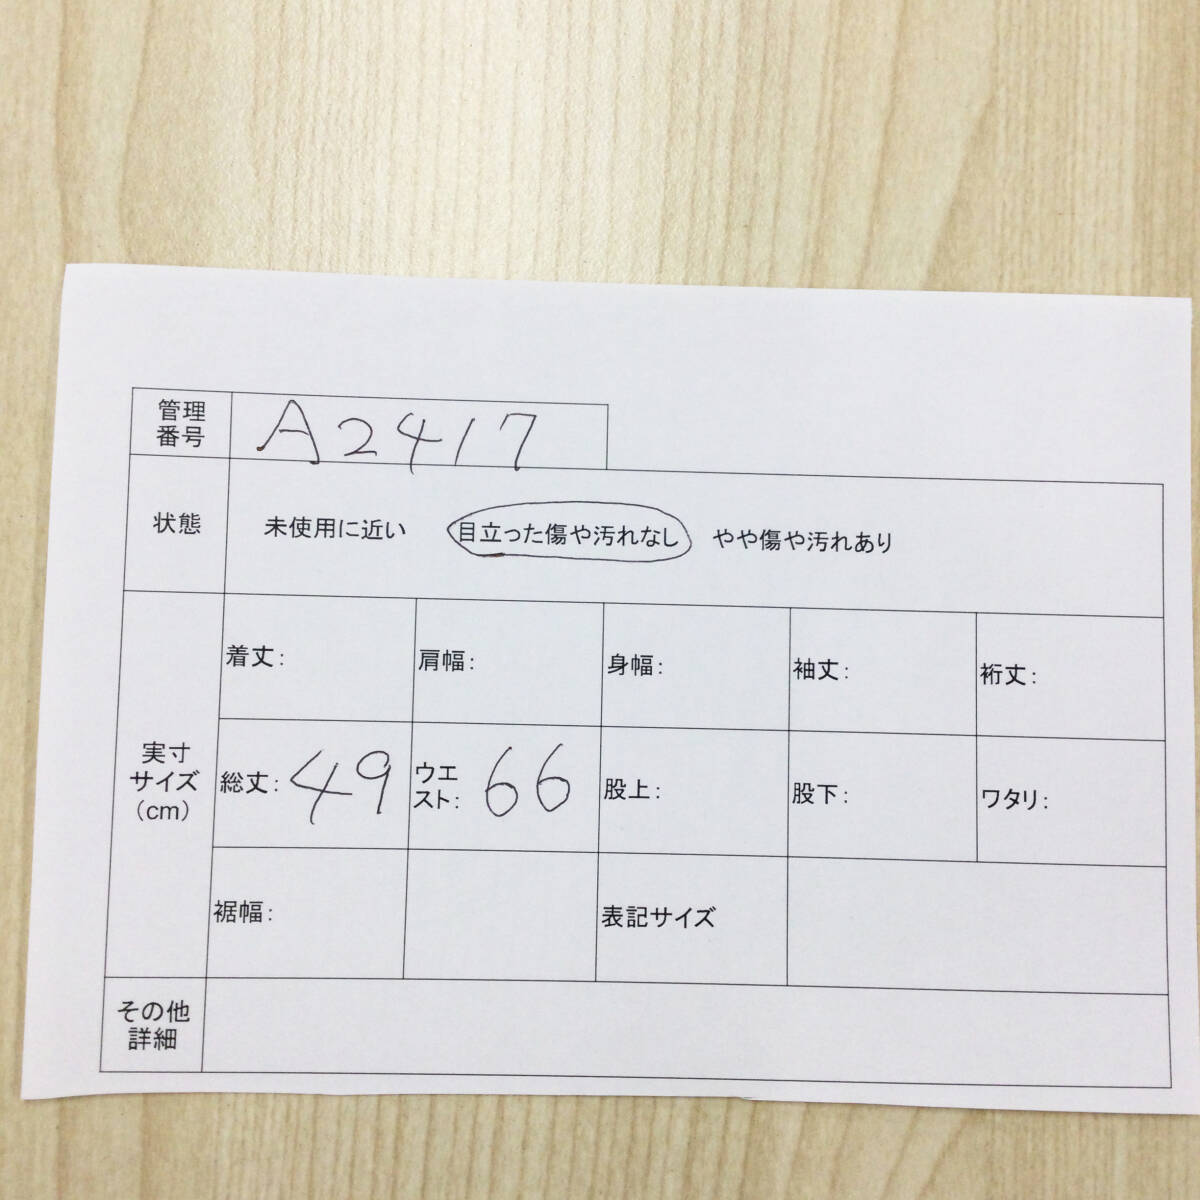 管理
番号
A2417
状態
未使用に近い 目立った傷や汚れなし やや傷や汚れあり
実寸
サイズ
(cm)
着丈: 肩幅: 身幅: 袖丈: 裄丈:
総丈: 49 ウエ
スト: 66 股上: 股下: ワタリ:
裾幅: 表記サイズ
その他
詳細